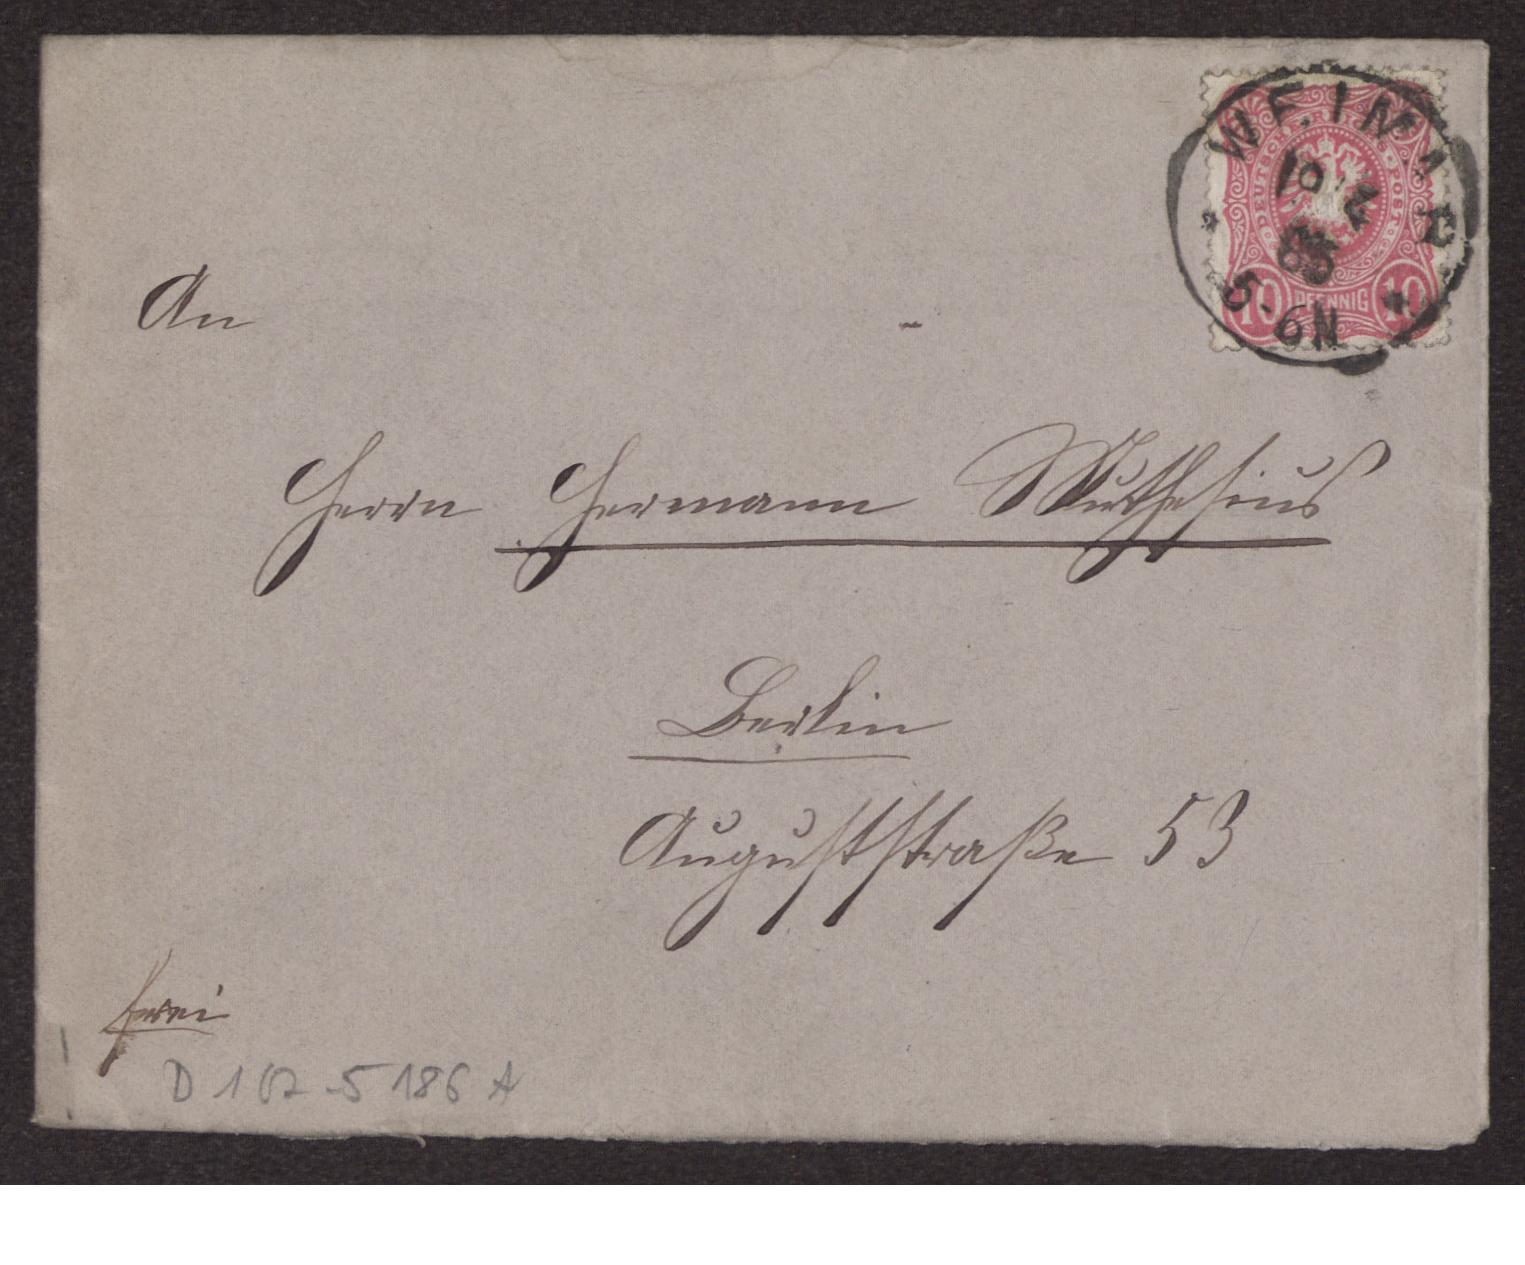 WEIMAR
DEUTSCHE REICHS-POST
5-6N
10 PFENNIG 10
An
Herrn Hermann Muthesius
Berlin
Auguststraße 53
frei
D 102-5186 A